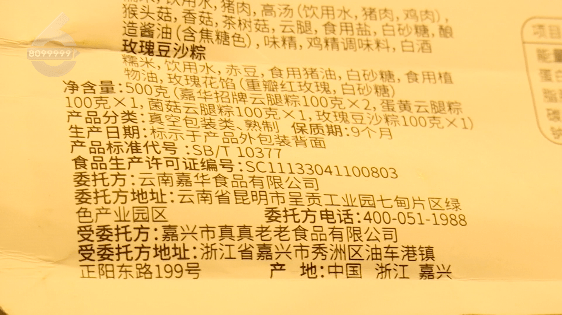 糯米,饮用水,猪肉,高汤(饮用水,猪肉,鸡肉),
猴头菇,香菇,茶树菇,云腿,食用盐,白砂糖,酿
造酱油(含焦糖色),味精,鸡精调味料,白酒
玫瑰豆沙粽
糯米,饮用水,赤豆,食用猪油,白砂糖,食用植
物油,玫瑰花馅(重瓣红玫瑰,白砂糖)
净含量:500克(嘉华招牌云腿粽100克×2,蛋黄云腿粽
100克×1,菌菇云腿粽100克×1,玫瑰豆沙粽100克×1)
产品分类:真空包装类、熟制 保质期:9个月
生产日期:标示于产品外包装背面
产品标准代号:SB/T 10377
食品生产许可证编号:SC11133041100803
委托方:云南嘉华食品有限公司
委托方地址:云南省昆明市呈贡工业园七甸片区绿
色产业园区 委托方电话:400-051-1988
受委托方:嘉兴市真真老老食品有限公司
受委托方地址:浙江省嘉兴市秀洲区油车港镇
正阳东路199号 产 地:中国 浙江 嘉兴
项目
能量
蛋白
脂
碳
8099999